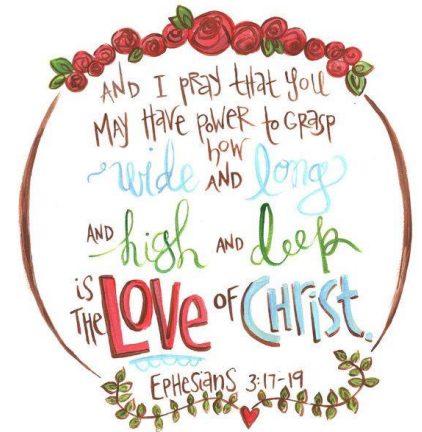 AND I pray that you
MAY HAVE POWER to GRASP
how
wide AND long
AND high AND deep
is THE LOVE OF CHRIST.
EPHESIANS 3:17-19